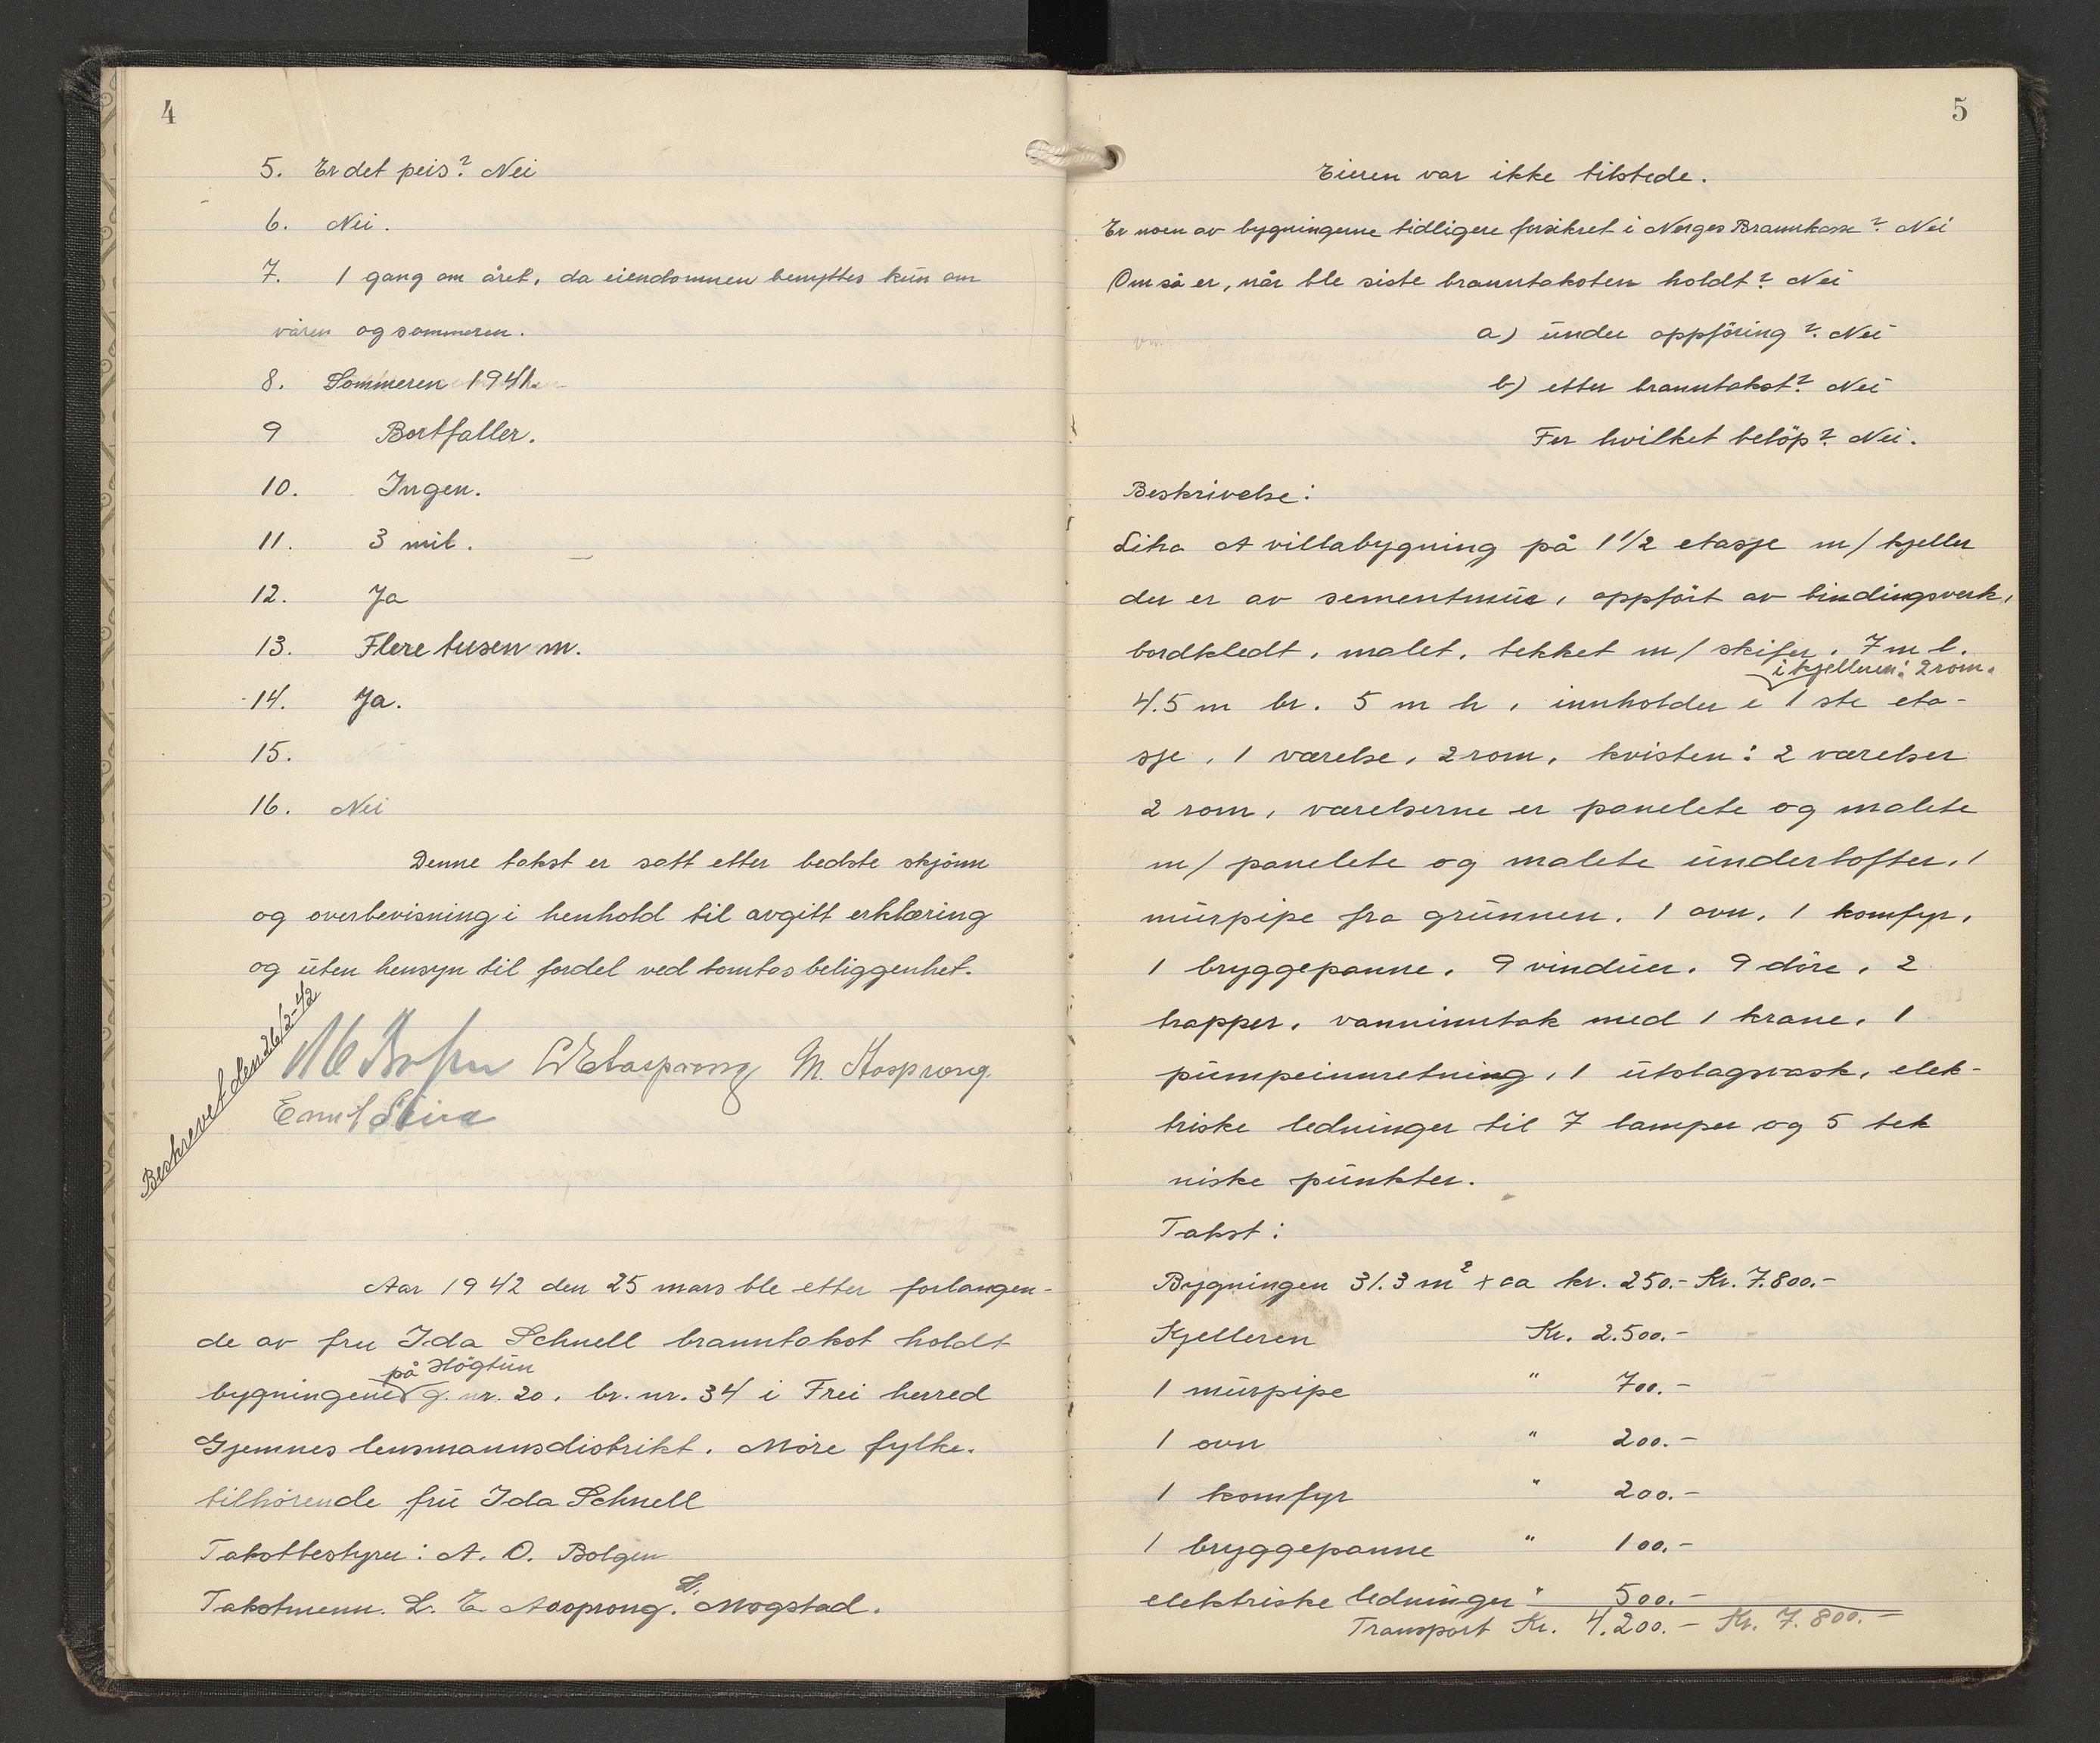 4
5. Er det peis? Nei
6. Nei.
7. 1 gang om året, da eiendommen benyttes kun om
våren og sommeren.
8. Sommeren 1941.
9 Bortfaller.
10. Ingen.
11. 3 mil.
12. Ja
13. Flere tusen m.
14. Ja.
15.
16. Nei
Denne takst er satt etter bedste skjönn
og overbevisning i henhold til avgitt erklæring
og uten hensyn til fordel ved tomtas beliggenhet.
Beskrevet den 26/2-42
L E Aasprong M. Aasprong
Emil
Aar 1942 den 25 mars ble etter forlangen-
de av fru Ida Schnell branntakst holdt
på Högtun
bygningene g. nr. 20, br. nr. 34 i Frei herred
Gjemnes lensmannsdistrikt. Möre fylke.
tilhörende fru Ida Schnell
Takstbestyrer: A. O. Bolgen
Takstmenn. L. E Aasprong. L. Mogstad.
5
Eieren var ikke tilstede.
Er noen av bygningerne tidligere forsikret i Norges Brannkasse? Nei
Om så er, når ble siste branntaksten holdt? Nei
a) under oppföring? Nei
b) etter branntakst? Nei
For hvilket belöp? Nei.
Beskrivelse:
Litra A villabygning på 1 1/2 etasje m/ kjeller
der er av sementmur, oppfört av bindingsverk,
bordkledt, malet, tekket m/ skifer. 7 m l.
i kjelleren: 2 rom.
4.5 m br. 5 m h, innholder i 1 ste eta-
sje, 1 værelse, 2 rom, kvisten: 2 værelser
2 rom, værelserne er panelete og malete
m/ panelete og malete underlofter. 1
murpipe fra grunnen. 1 ovn, 1 komfyr,
1 bryggepanne, 9 vinduer. 9 döre, 2
trapper, vanninntak med 1 krane, 1
pumpeinnretning, 1 utslagsvask, elek-
triske ledninger til 7 lamper og 5 tek
niske punkter.
Takst:
Bygningen 31.3 m² x ca kr. 250.- Kr. 7.800.-
Kjelleren Kr. 2.500.-
1 murpipe " 700.-
1 ovn " 200.-
1 komfyr " 200.-
1 bryggepanne " 100.-
elektriske ledninger " 500.-
Transport Kr. 4.200.- Kr. 7.800.-